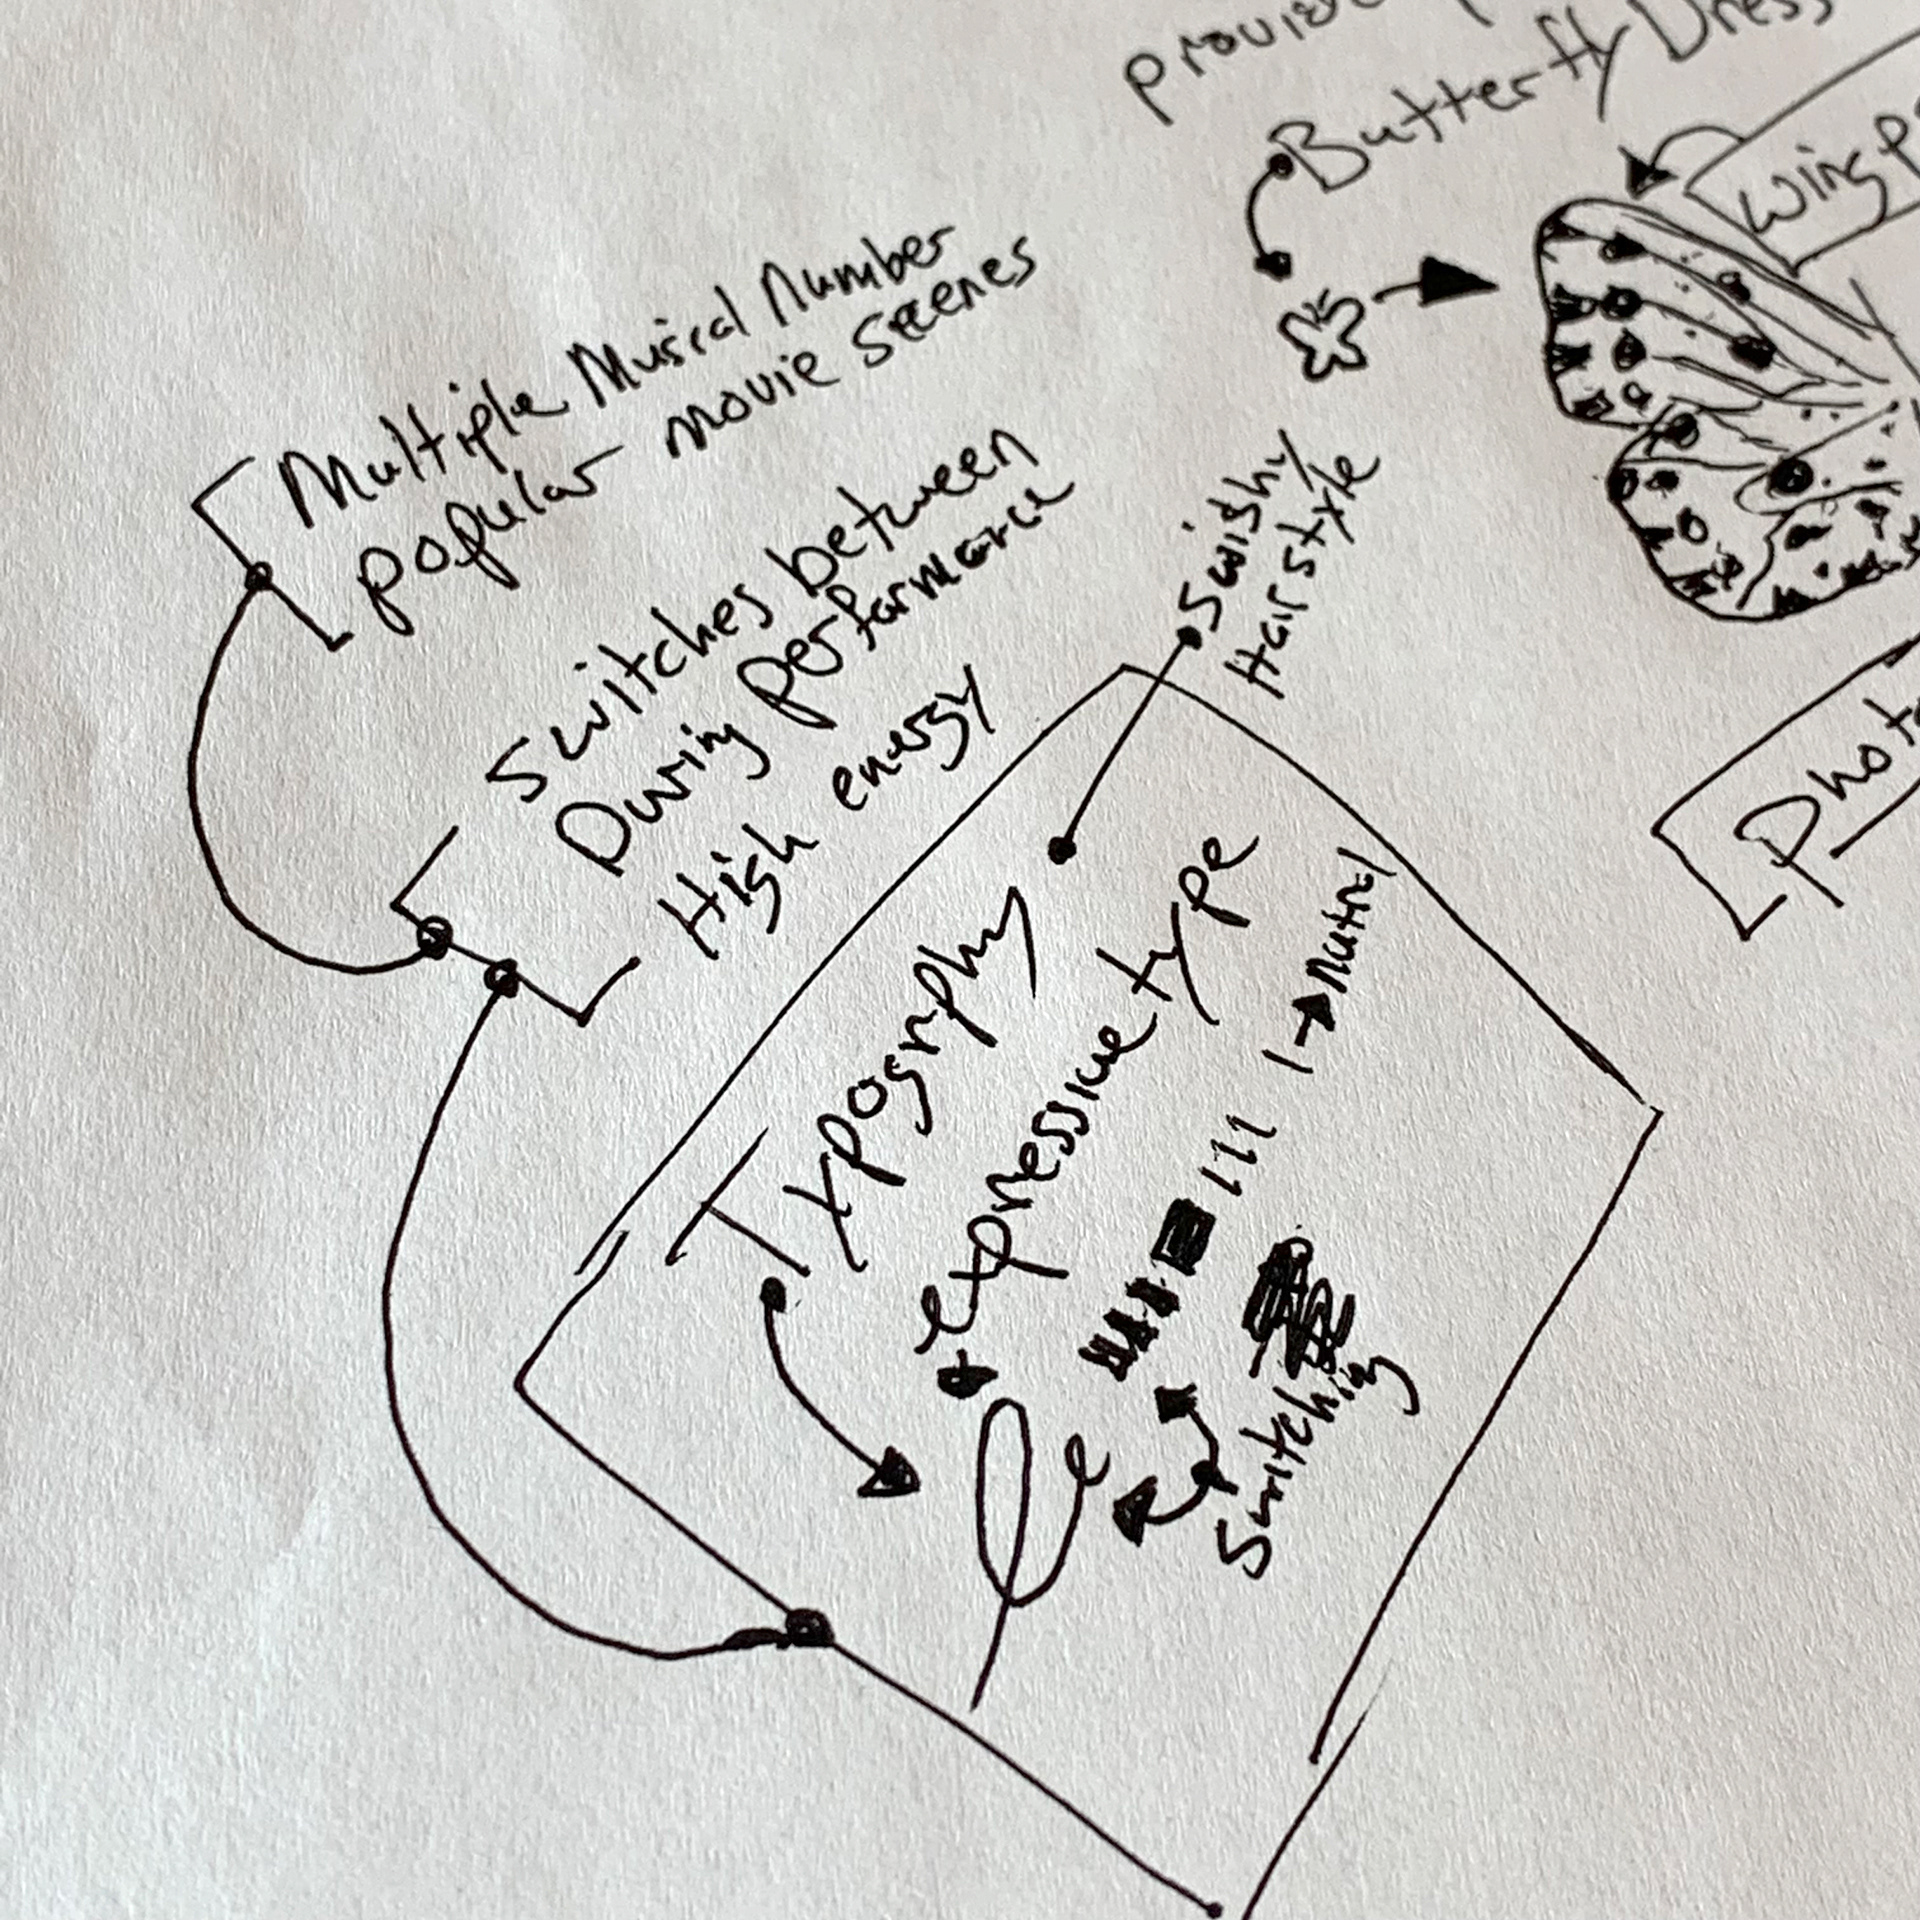 Butterfly Dress
wing
Multiple Musical Number
popular movie scenes
Switches between
During performance
High energy
Swishy
Hairstyle
Typogrphy
expressive type
→ nutrel
Switching